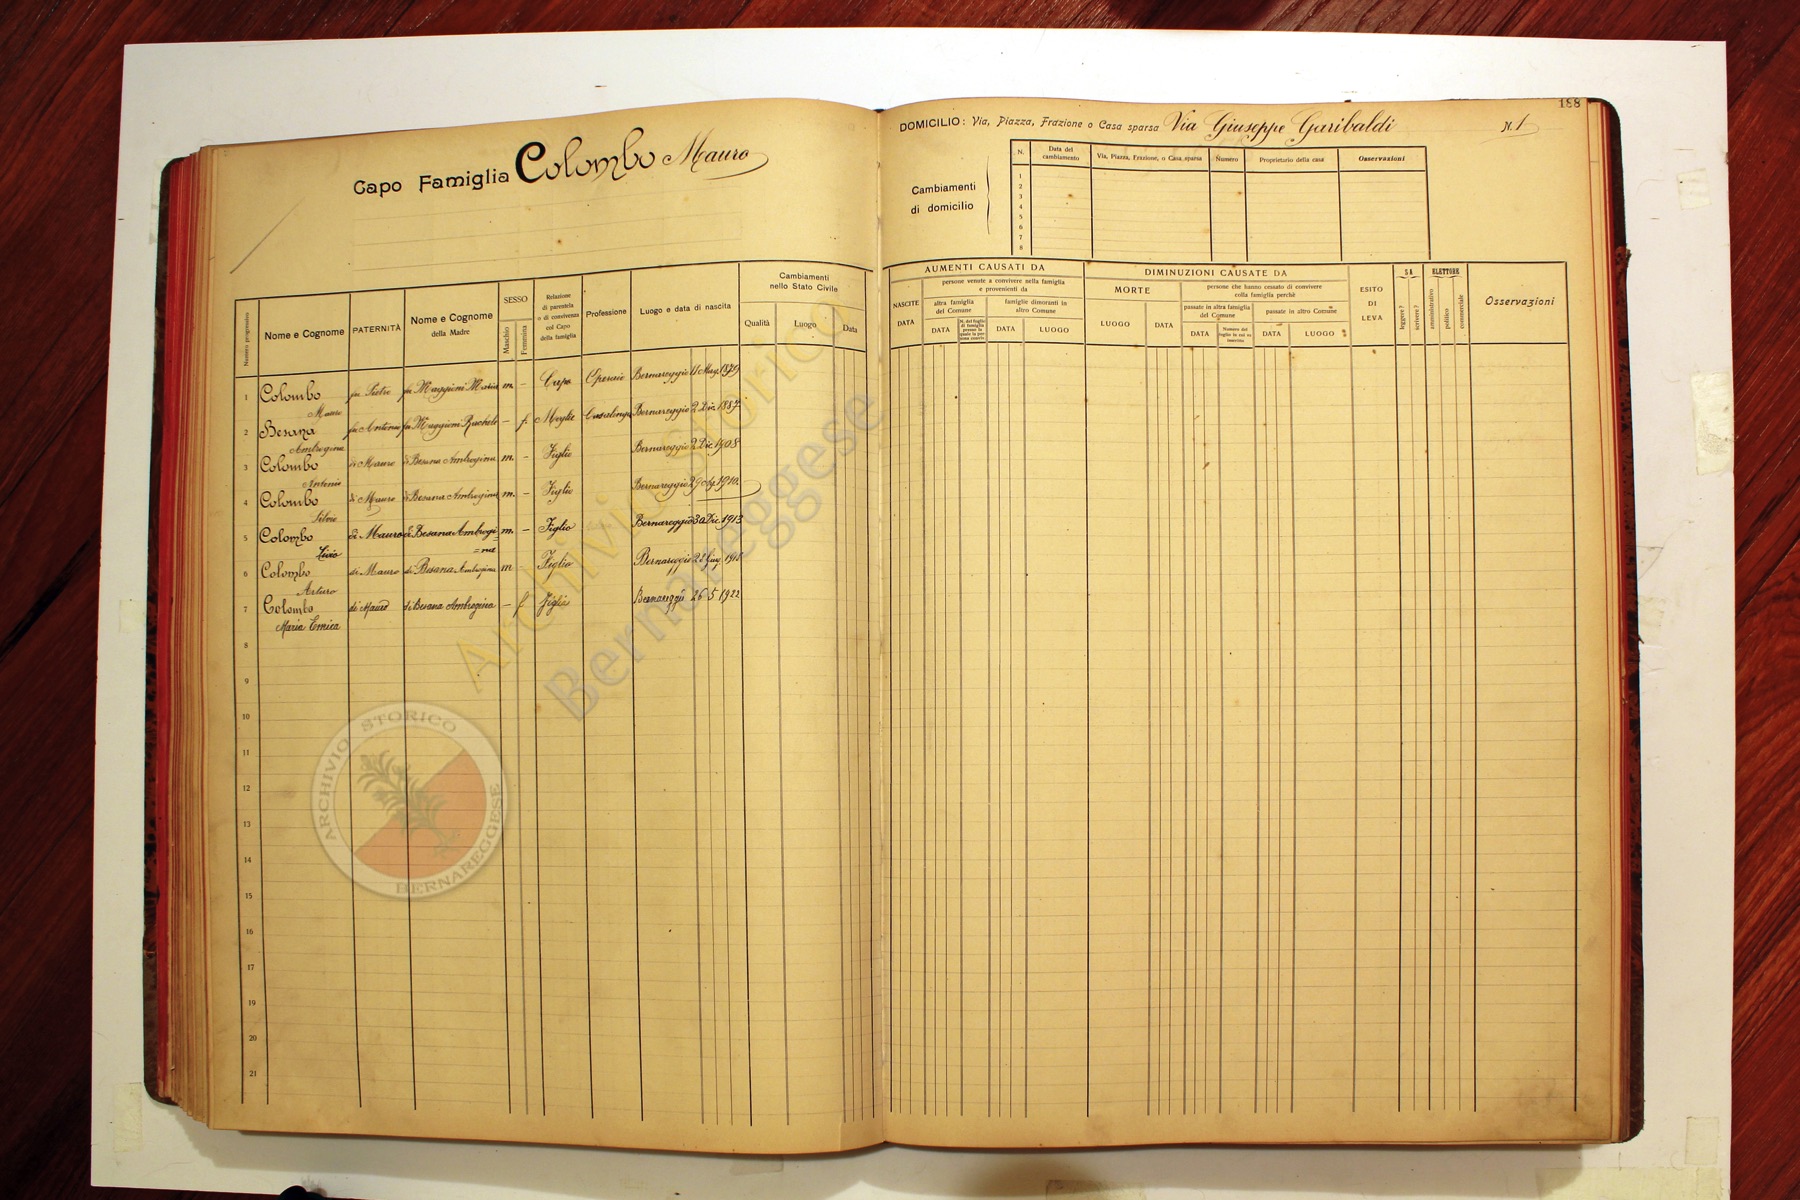 Capo Famiglia Colombo Mauro
188
DOMICILIO: Via, Piazza, Frazione o Casa sparsa Via Giuseppe Garibaldi N. 1
Cambiamenti di domicilio
N. Data del cambiamento Via, Piazza, Frazione, o Casa sparsa Numero Proprietario della casa Osservazioni
1
2
3
4
5
6
7
8
Numero progressivo
Nome e Cognome
PATERNITÀ
Nome e Cognome della Madre
SESSO
Maschio
Femmina
Relazione di parentela o di convivenza col Capo della famiglia
Professione
Luogo e data di nascita
Cambiamenti nello Stato Civile
Qualità Luogo Data
AUMENTI CAUSATI DA
NASCITE
DATA
persone venute a convivere nella famiglia e provenienti da
altra famiglia del Comune
DATA
famiglie dimoranti in altro Comune
DATA LUOGO
DIMINUZIONI CAUSATE DA
MORTE
LUOGO DATA
persone che hanno cessato di convivere colla famiglia perchè
passate in altra famiglia del Comune
DATA
passate in altro Comune
DATA LUOGO
ESITO DI LEVA
SA
leggere?
scrivere?
ELETTORE
amministrativo
politico
commerciale
Osservazioni
1 Colombo Mauro fu Pietro fu Maggioni Maria m. – Capo Operaio Bernareggio 11 Mag. 1879
2 Besana Ambrogina fu Antonio fu Maggioni Rachele – f. Moglie Casalinga Bernareggio 2 Dic. 1887
3 Colombo Antonio di Mauro di Besana Ambrogina m. – Figlio Bernareggio 2 Dic. 1908
4 Colombo Silvio di Mauro di Besana Ambrogina m. – Figlio Bernareggio 29 1910.
5 Colombo Livio di Mauro di Besana Ambrogi=na m. – Figlio Bernareggio 30 Dic. 1913
6 Colombo Arturo di Mauro di Besana Ambrogina m Figlio Bernareggio
7 Colombo Maria Enrica di Mauro di Besana Ambrogina – f Figlia 26 5 1922
8
9
10
11
12
13
14
15
16
17
18
19
20
21
Archivio Storico
Bernareggese
ARCHIVIO STORICO
BERNAREGGESE